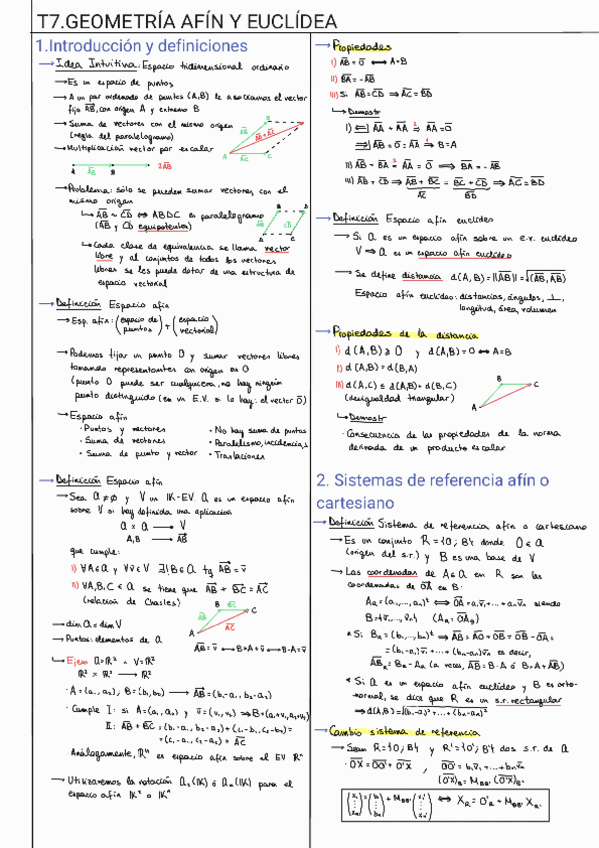 T7.GEOMETRÍA AFÍN Y EUCLÍDEA
1.Introducción y definiciones
→ Idea Intuitiva: Espacio tridimensional ordinario
→ Es un espacio de puntos
→ A un par ordenado de puntos (A,B) le asociamos el vector
fijo AB, con origen A y extremo B
→ Suma de vectores con el mismo origen
(regla del paralelogramo)
→ Multiplicación vector por escalar
A AB B 2AB
→ Problema: sólo se pueden sumar vectores con el
mismo origen
↳ AB ~ CD ⇔ ABDC es paralelogramo
(AB y CD equipotentes)
↳ Cada clase de equivalencia se llama vector
libre y al conjunto de todos los vectores
libres se les puede dotar de una estructura de
espacio vectorial
→ Definición Espacio afín
→ Esp. afín: (espacio de puntos) + (espacio vectorial)
→ Podemos fijar un punto O y sumar vectores libres
tomando representantes con origen en O
(punto O puede ser cualquiera, no hay ningún
punto distinguido (en un E.V. sí lo hay: el vector 0)
→ Espacio afín
· Puntos y vectores · No hay suma de puntos
· Suma de vectores · Paralelismo, incidencias
· Suma de punto y vector · Traslaciones
→ Definición Espacio afín
→ Sea a ≠ ∅ y V un IK-EV. a es un espacio afín
sobre V si hay definida una aplicación
a × a → V
A,B → AB
que cumple:
I) ∀A∈a y ∀v∈V ∃!B∈a tq AB = v
II) ∀A,B,C ∈ a se tiene que AB + BC = AC
(relación de Chasles)
→ dim a = dim V
→ Puntos: elementos de a
AB = v ⟷ B=A+v ⟷ B-A=v
↳ Ejem a=ℝ² ∧ V=ℝ²
ℝ² × ℝ² → ℝ²
· A=(a₁,a₂), B=(b₁,b₂) → AB=(b₁-a₁, b₂-a₂)
· Cumple I: si A=(a₁,a₂) y v=(v₁,v₂) ⇒ B=(a₁+v₁,a₂+v₂)
II: AB + BC = (b₁-a₁, b₂-a₂) + (c₁-b₁, c₂-b₂) =
=(c₁-a₁, c₂-a₂) = AC
· Análogamente, ℝⁿ es espacio afín sobre el EV ℝⁿ
→ Utilizaremos la notación
espacio afín IK² o IKⁿ
→ Propiedades
I) AB = 0 ⟷ A=B
II) BA = -AB
III) Si AB = CD ⇒ AC = BD
↳ Demostr
I) ⇐] AA + AA = AA ⇒ AA = 0
⇒] AB = 0 = AA ⇒ B = A
II) AB + BA = AA = 0 ⇒ BA = -AB
III) AB = CD ⇒ AB + BC = BC + CD ⇒ AC = BD
AC BD
→ Definición Espacio afín euclídeo
→ Si a es un espacio afín sobre un e.v. euclídeo
V ⇒ a es un espacio afín euclídeo
→ Se define distancia d(A,B) = ||AB|| = √(AB, AB)
Espacio afín euclídeo: distancias, ángulos, ⊥,
longitud, área, volumen
→ Propiedades de la distancia
I) d(A,B) ≥ 0 y d(A,B) = 0 ⟷ A=B
II) d(A,B) = d(B,A)
III) d(A,C) ≤ d(A,B) + d(B,C)
(desigualdad triangular)
↳ Demostr
· Consecuencia de las propiedades de la norma
derivada de un producto escalar
2. Sistemas de referencia afín o
cartesiano
→ Definición Sistema de referencia afín o cartesiano
→ Es un conjunto R={O;B} donde O∈a
(origen del s.r.) y B es una base de V
→ Las coordenadas de A∈a en R son las
coordenadas de OA en B:
A_R = (a₁,...,aₙ)ᵗ ⟺ OA = a₁v₁+...+aₙvₙ siendo
B={v₁,...,vₙ} (A_R = OA_B)
* Si B_R = (b₁,...,bₙ)ᵗ ⇒ AB = AO + OB = OB - OA =
= (b₁-a₁)v₁+...+(bₙ-aₙ)vₙ es decir,
AB_B = B_R - A_R (a veces, AB = B-A ó B = A+AB)
* Si a es un espacio afín euclídeo y B es orto-
normal, se dice que R es un s.r. rectangular
⇒ d(A,B) = √(b₁-a₁)²+...+(bₙ-aₙ)²
→ Cambio sistema de referencia
→ Sean R={O;B} y R'={O';B'} dos s.r. de a
· OX = OO' + O'X, OO' = b₁v₁+...+bₙvₙ
(O'X)_B = M_BB' (O'X)_B'
(x₁ ⋮ xₙ) = (b₁ ⋮ bₙ) + M_BB' (x₁' ⋮ xₙ') ⟺ X_R = O'_R + M_BB' X_R'